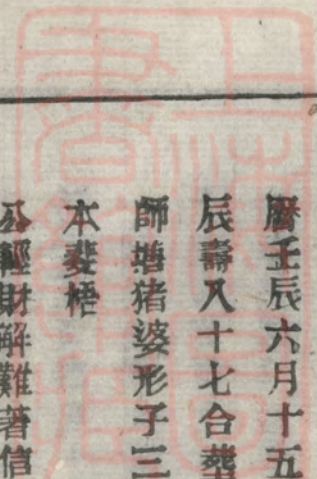 曆壬辰六月十五
辰壽八十七合葬
師塘猪婆形子三
本斐梧
公輕財解難著信